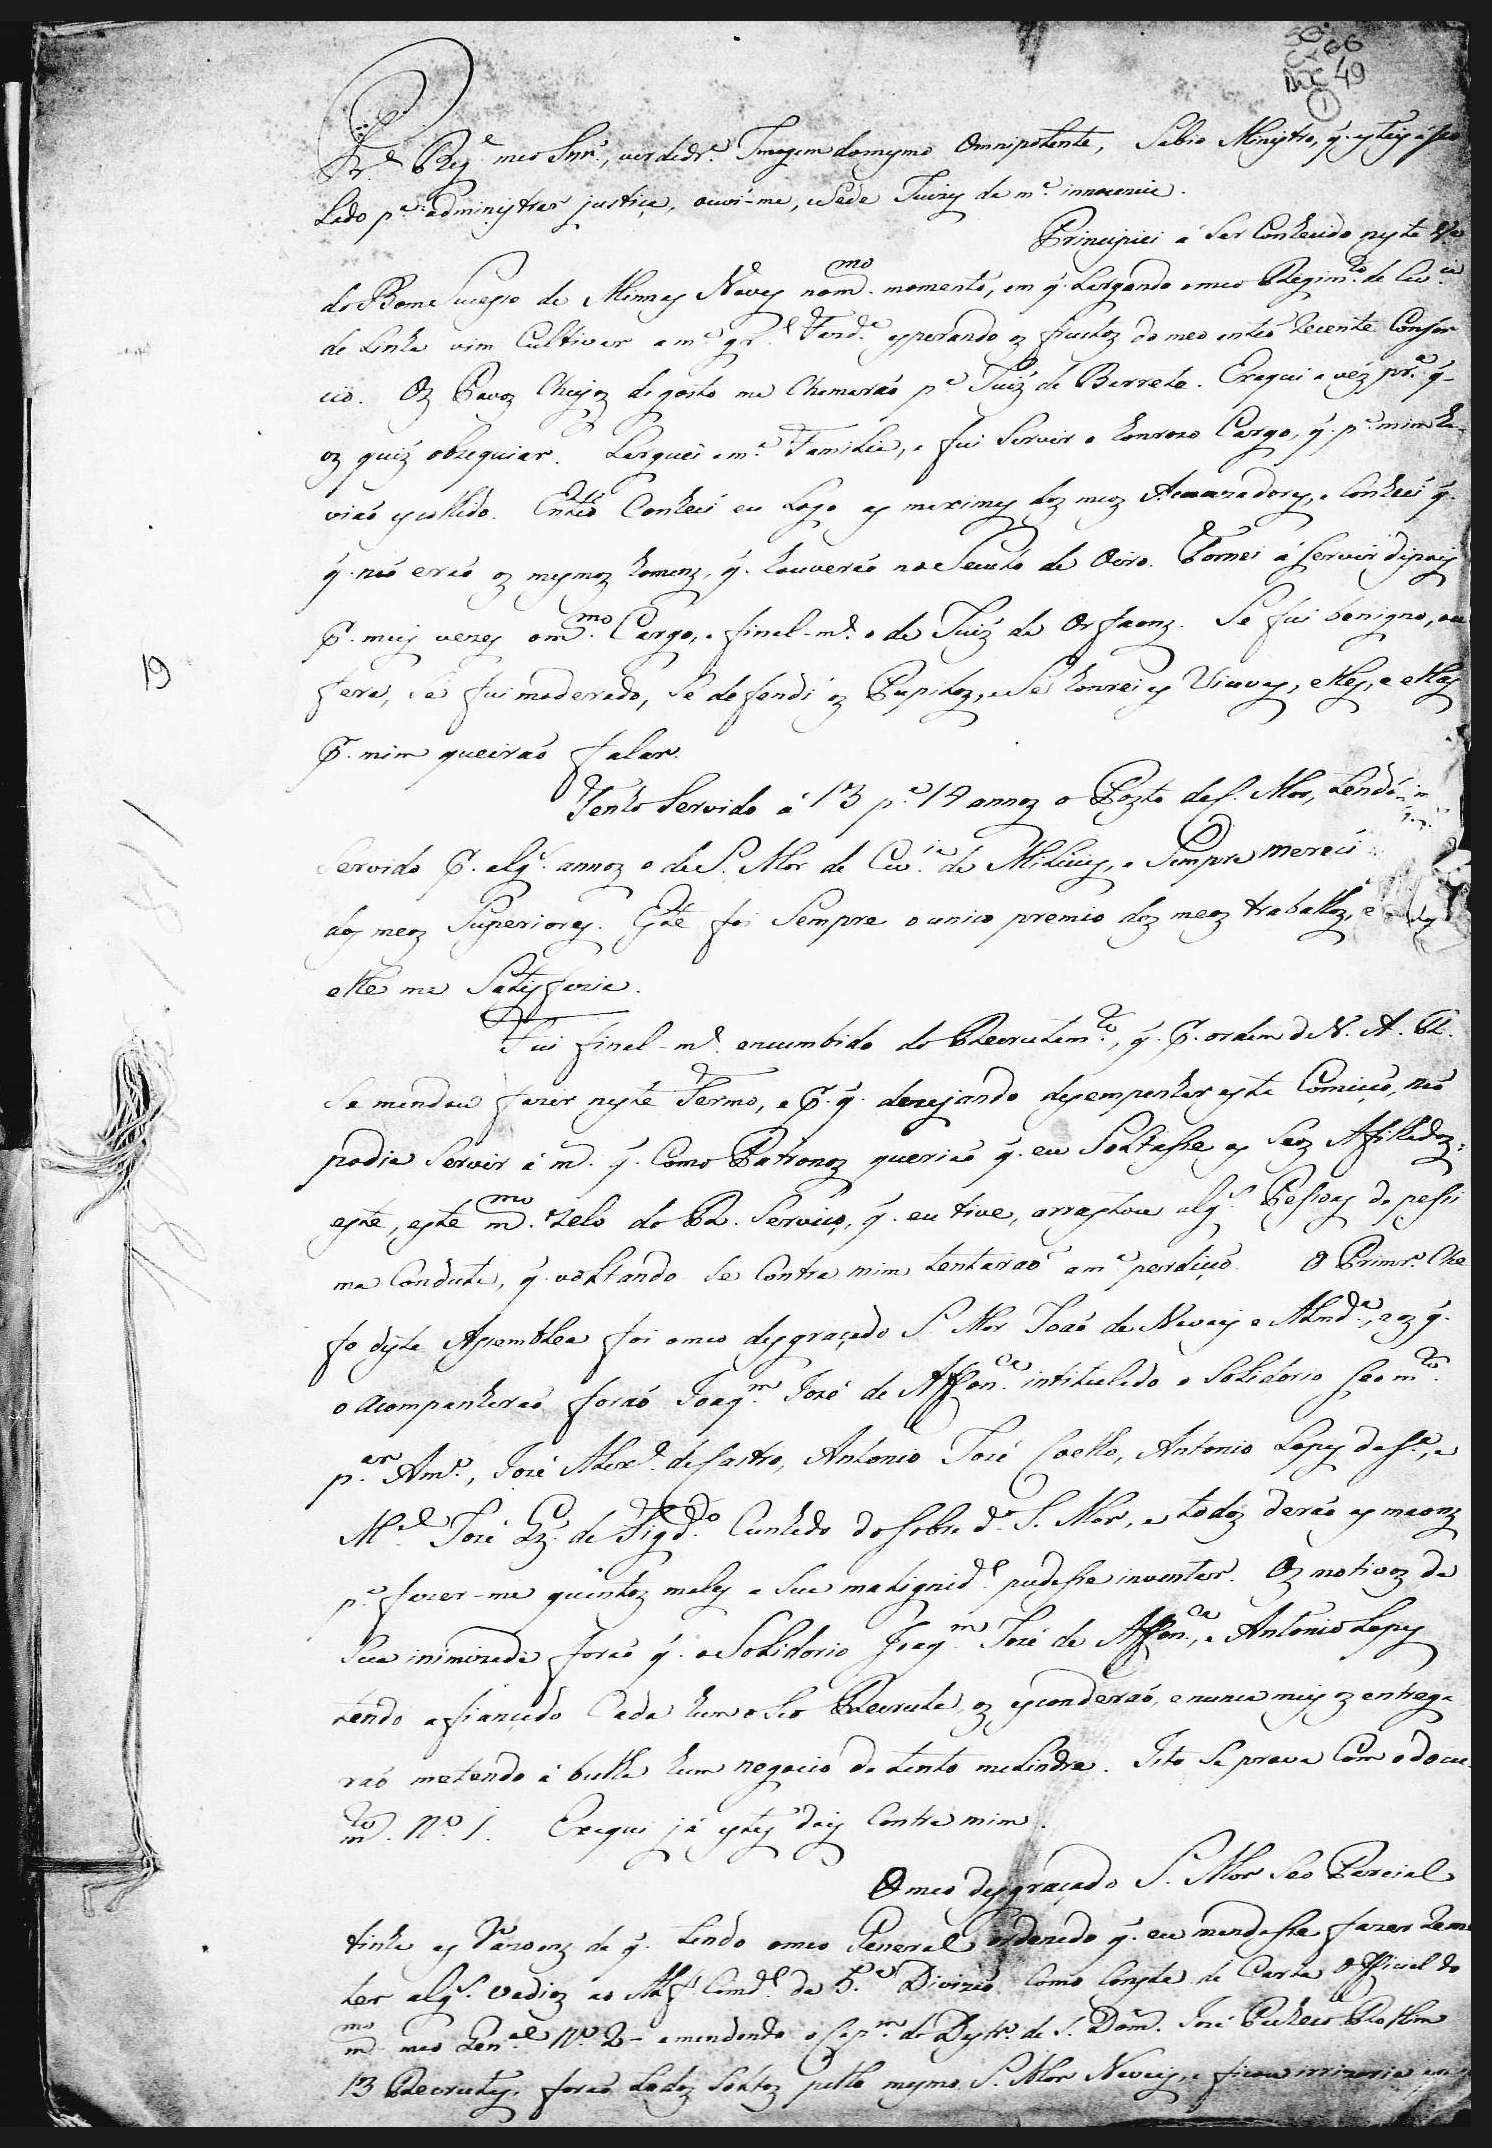 SG.
CX 86
DOC 49
1
Pr.e Reg.e meo Snr., verdadr.a Imagem domesmo Omnipotente, Sabio Ministro, q. estais áseo
Lado p.a administrar justiça, ouvi-me, eSede Juizes da m.a innocencia.
Principiei a Ser Conhecido nesta Va
do Bom Sucesso de Minnas Novas nom.mo momento, em q. Largando omeo Regim.to de Cav.ia
de Linha vim Cultivar a m.a gr.l Fazd.a esperando os fructos do meo entaó recente Consór
cio. Os Povos Cheyos degosto me Chamaraó p.a Juiz de Barrete. Eraqui a véz pr.a q.
os quiz obsequiar. Larguei am.a Familia, e fui Servir o honroso Cargo, q. p.a mim ha
viaó escolhido. Entaó Conhecí eu Logo as maximas dos meos Accuzadores, e Conhecí q.
q. naó eraó os mesmos homens, q. houveraó no Seculo de Oiro. Tornei á Servir depois
P. mais vezes om.mo Cargo, e final-m.e o de Juiz de Orfaons. Se fui benigno, ou
fera, Se fui moderado, Se defendi os Pupilos, e Se honrei as Viuvas, elles, e ellas
P. mim queiraó falar.
Tenho Servido á 13 p.a 14 annos o Posto de C. Mor, tendo
Servido P. alg.s annos o de S. Mor de Cav.ia de Milicias, e Sempre merecí
dos meos Superiores. Este foi Sempre o unico premio dos meos trabalhos, e
elle me Satisfazia.
Fui final-m.e encumbido do Recrutam.to, q. P. ordem de V. A. R.
Se mandou fazer neste Termo, e P. q. dezejando desempenhar esta Comicaó, naó
podia Servir á m.s q. Como Patronos queriaó q. eu Soltasse os Seos Afilhados;
este, este m.mo zelo do R. Serviço, q. eu tive, arrastou alg.s Pessoas de pessi
ma Conduta, q. voltando-Se Contra mim tentaraó am.a perdiçaó. O Primr.o Che
fe desta Assemblea foi omeo desgraçado S. Mor Joaó de Novaes e Almd.a, e os q.
o acompanharaó foraó Joaq.m José de Affon.ca intitulado o Solidorio Seo m.to
p.ar Am.o, José Alex.e de Castro, Antonio José Coelho, Antonio Lopes da S.a, e
M.el José Gz. de Figd.o Cunhado do Sobre d.o S. Mor, e todos deraó as maons
p.a fazer-me quantos males a Sua malignid.e pudesse inventar. Os motivos da
Sua inimizade foraó q. o Solidorio Joaq.m José de Affon.ca, e Antonio Lopes
tendo afiançado Cada hum o Seo Recruta, os esconderaó, e nunca mais os entrega
raó metendo á bulha hum negocio de tanto melindre. Isto Se prova Com o docu
m.to N.o 1. Eraqui já estes dois Contra mim.
Omeo desgraçado S. Mor Seo Parcial
tinha as razoens de q. tendo omeo General ordenado q. eu mandasse fazer reme
ter alg.s vadios ao Alf. Comd.e da 5.a Divizaó Como Consta da Carta Official do
m.mo meo Gen.al N.o 2 - e mandando o Cap.m do Destr.o de S. Dom. José Pacheco Rolhm
13 Recrutas, foraó todos Soltos pello mesmo S. Mor Novaes, e ficou irrizoria
19
1811